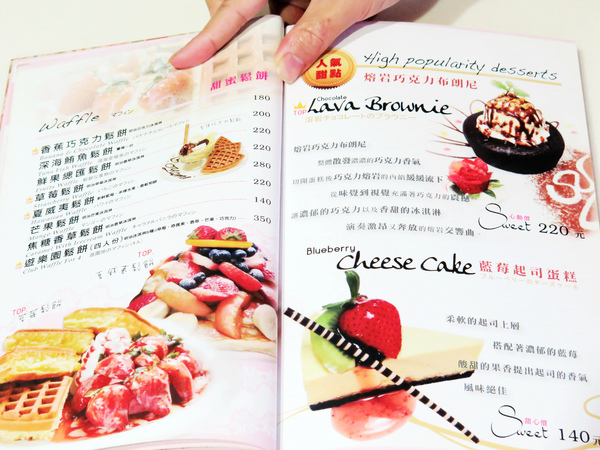 甜蜜鬆餅
Waffle
香蕉巧克力鬆餅
深海鮪魚鬆餅
鮮果總匯鬆餅
草莓鬆餅
夏威夷鬆餅
芒果鬆餅
焦糖香草鬆餅
遊樂園鬆餅(四人份)
Club Waffle For 4
180
200
220
280
220
220
140
350
TOP
TOP
人氣
甜點
High popularity desserts
熔岩巧克力布朗尼
TOP
Chocolate
Lava Brownie
溶岩チョコレートのブラウニー
熔岩巧克力布朗尼
整體散發濃濃的巧克力香氣
切開蛋糕後巧克力熔岩的內餡緩緩流下
從味覺到視覺充滿著巧克力的震撼
讓濃郁的巧克力以及香甜的冰淇淋
演奏激昂又奔放的熔岩交響曲
心動價
Sweet 220元
Blueberry
Cheese Cake 藍莓起司蛋糕
ブルーベリーのチーズケーキ
柔軟的起司上層
搭配著濃郁的藍莓
酸甜的果香提出起司的香氣
風味絕佳
甜心價
Sweet 140元